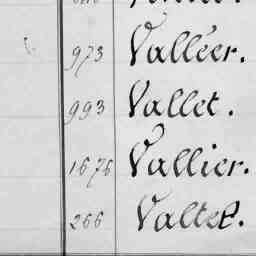 973 Valléer.
993 Vallet.
1676 Vallier.
266 Valtet.